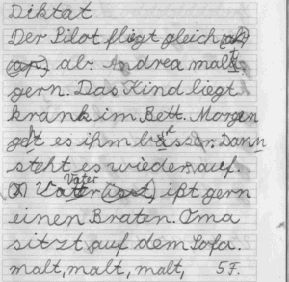 Diktat
Der Pilot fliegt gleich (ab)
(ar) ab. Andrea malt
gern. Das Kind liegt
krank im Bett. Morgen
geht es ihm besser. Dann
steht es wieder auf.
Vater
(X) Vater (isst) ißt gern
einen Braten. Oma
sitzt auf dem Sofa.
malt, malt, malt, 5 F.